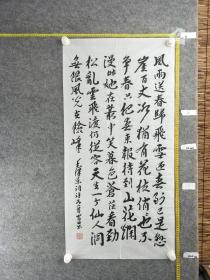 風雨送春歸飛雪迎春到已是懸
崖百丈冰猶有花枝俏俏也不
爭春只把春來報待到山花爛
漫時她在叢中笑暮色蒼茫看勁
松亂雲飛渡仍從容天生一个仙人洞
無限風光在險峰 毛澤東詞詩